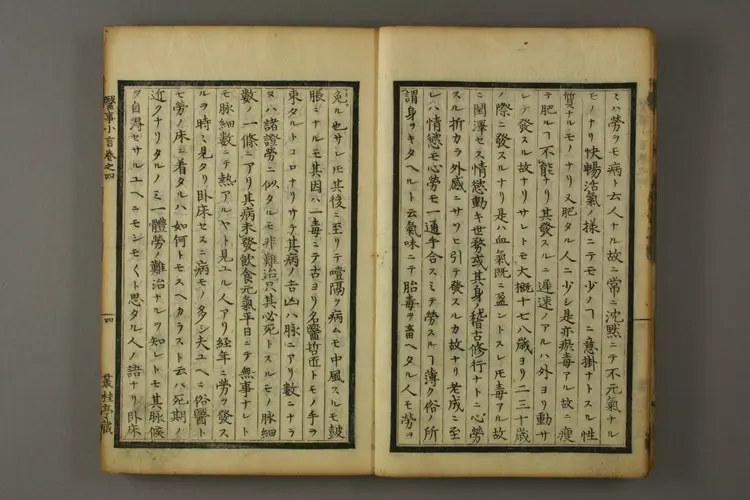 ミハ勞ヲモ病ト云人ナル故ニ常ニ沈黙ニテ不元氣ナル
モノナリ快暢活氣ノ樣ニテモ少ノヿニ意掛ナトスル性
質ナルモノナリ又肥タル人ニ少シ是亦瘀毒アル故ニ瘦
テ肥ルヿ不能ナリ其發スルニ遲速ノアルハ外ヨリ動サ
レテ發スル故ナリサレトモ大概十七八歳ヨリ二三十歳
ノ際ニ發スルナリ是ハ血氣既ニ盈ントスレ𪜈毒アル故
ニ閏澤セス情慾動キ世務或其身ノ稽古修行ナトニ心勞
スル折カラ外感ニサソヒ引テ發スルカ故ナリ老成ニ至
レハ情慾モ心勞モ一通手合スミテ勞スルヿ薄ク俗ノ所
謂身ヲキタヘルト云氣味ニテ胎毒ヲ畜ヘタル人モ勞ヲ
免ル也サレモ其後ニ至リテ噎隔ヲ病ムモ中風スルモ鼓
脹ニナルモ其因ハ一毒ニテ古ヨリ名醫哲匠トモノ手ヲ
束タルトコロナリサテ其病ノ吉凶ハ脉ニアリ數ニナラ
ヌハ諸證勞ニ似タルモ非難治只其必死トスルモノ脉細
數ノ一條ニアリ其病未發飲食元氣平日ニテ無事ナレト
モ脉細數ニテ熱アルヤト見エル人アリ經年ニ勞ヲ發ス
ルヲ時ミ見タリ卧床セスニ病モノ多シ夫ユヘニ俗醫ト
モ勞ノ床ニ着タルハ如何トモスヘカラスト云ハ死期ノ
近クナリタルノミ一體勞ノ難治ナルヲ知レトモ其脉候
ヲ自得セサルユヘニモシモくト思タル人ノ語ナリ卧床
醫事小言卷之四
四
叢桂亭藏